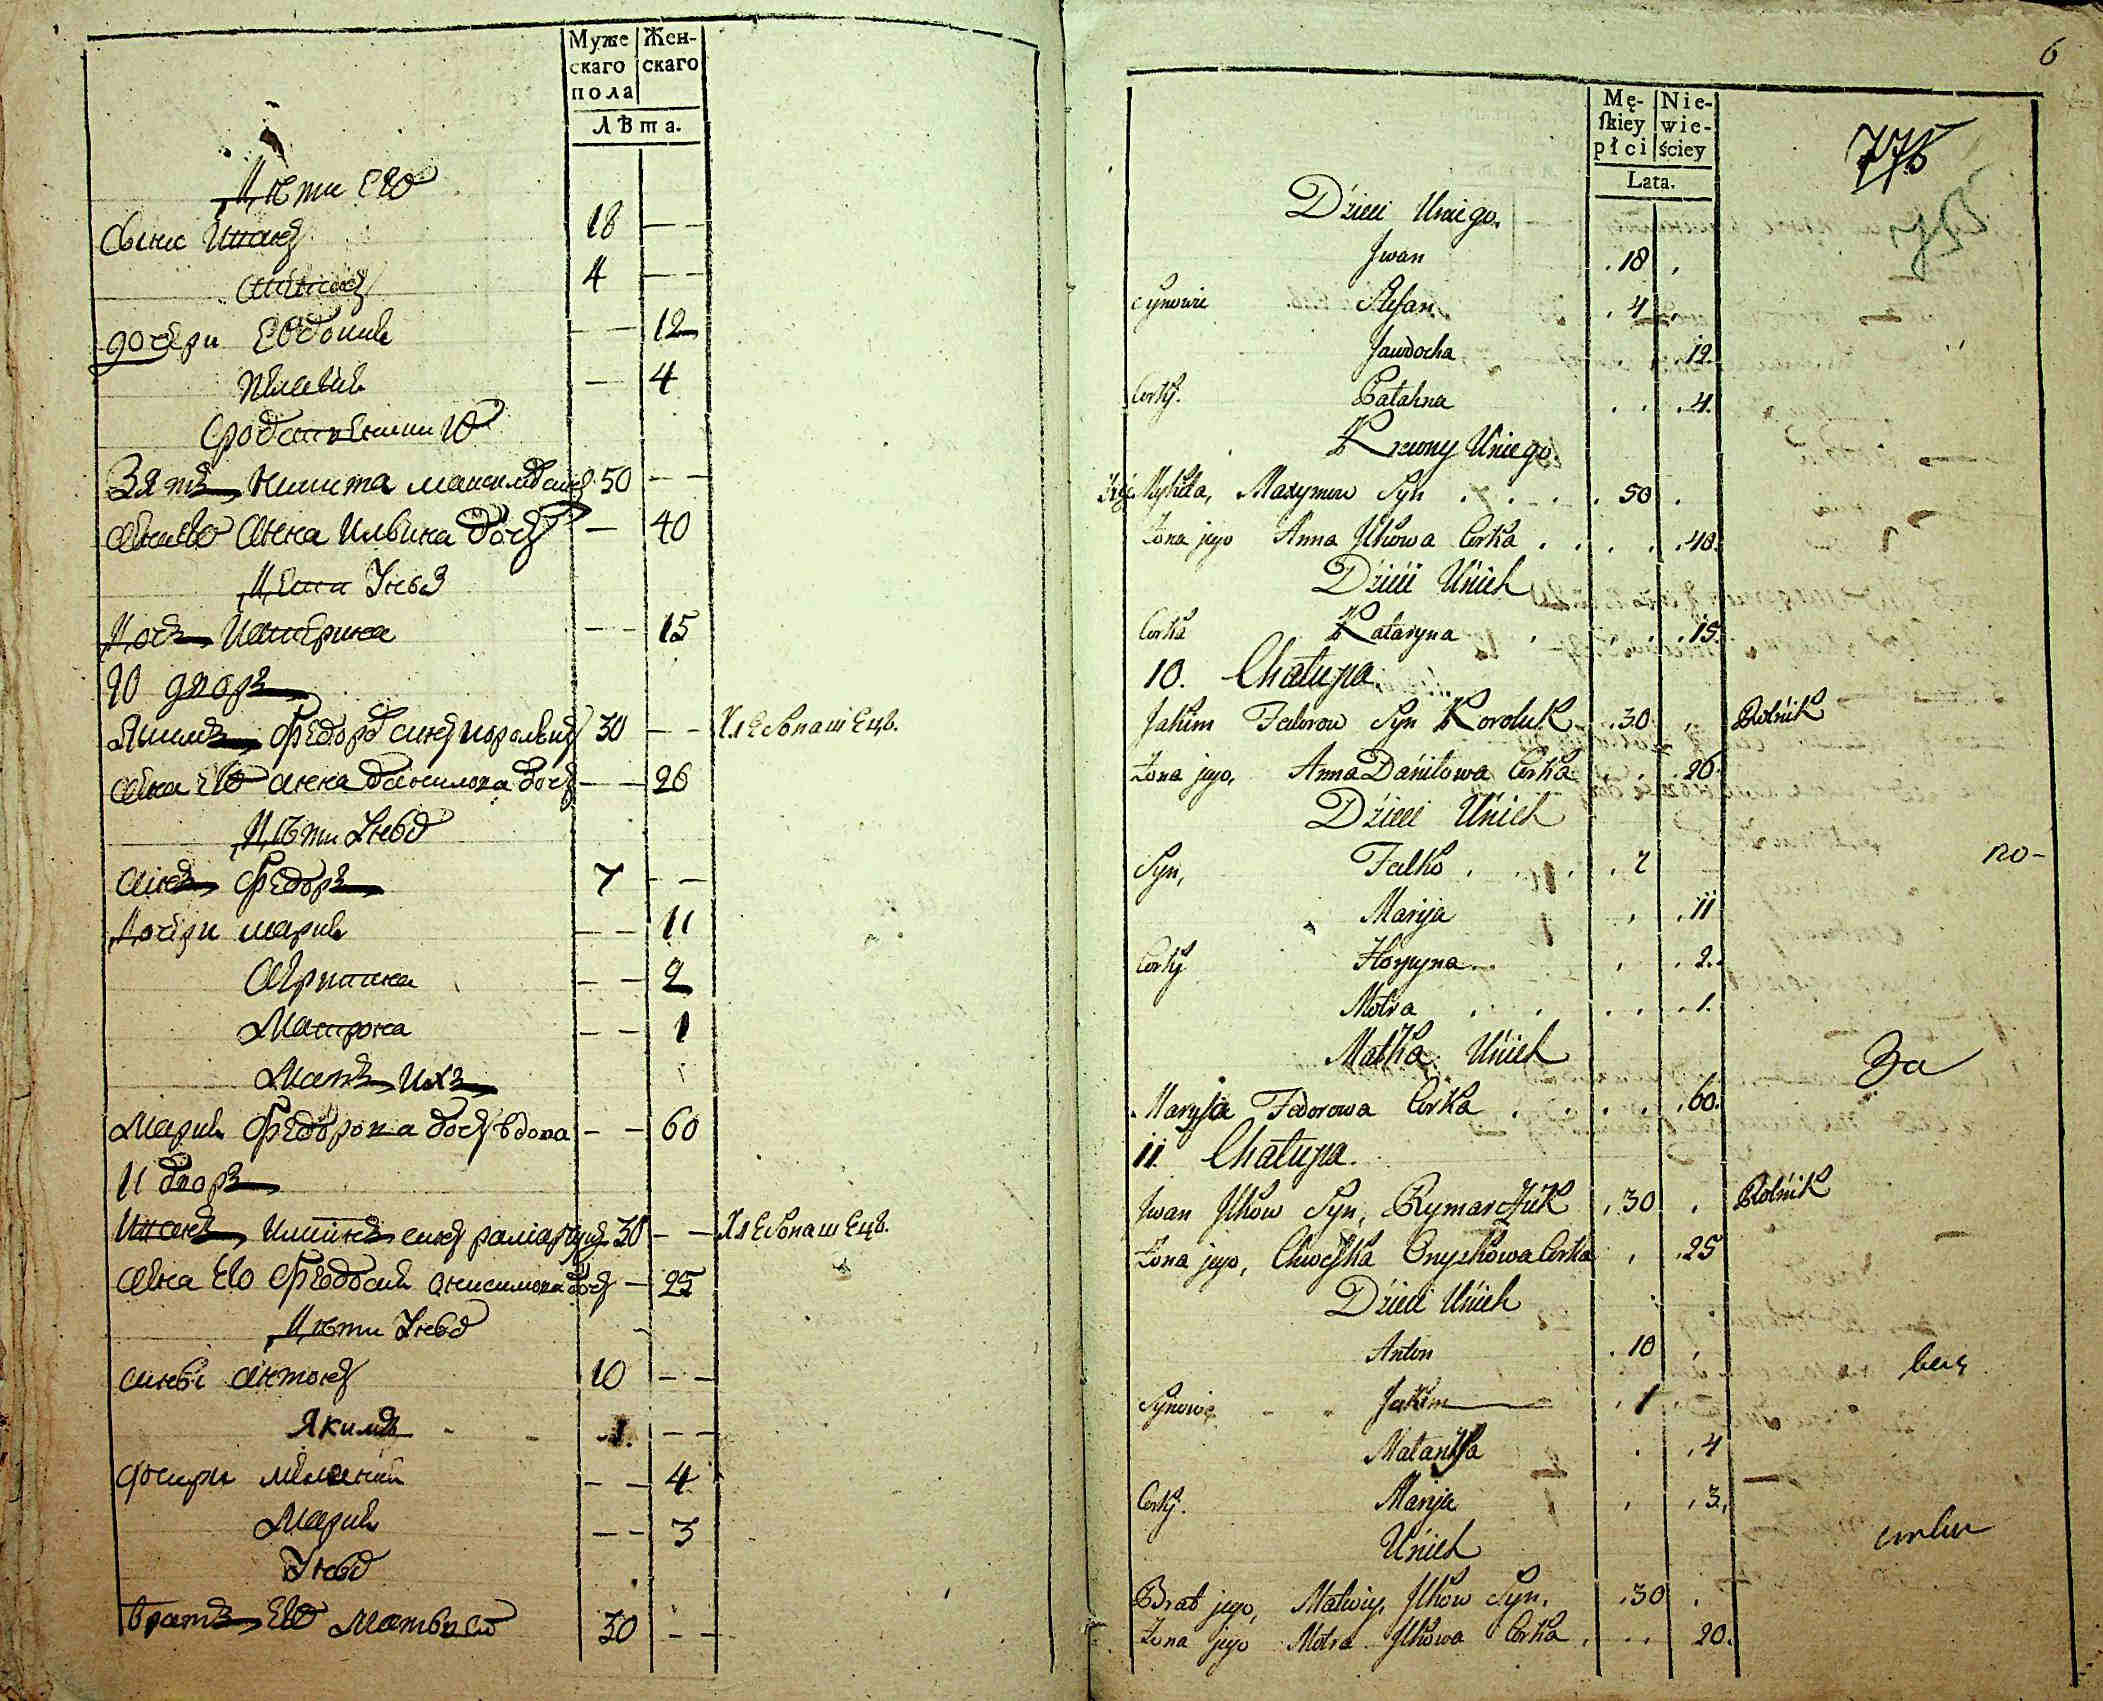 Муже
скаго
пола
Жен-
скаго
Лѣта.
Дѣти Его
Сынъ Иванъ 18 — —
4 — —
дочери Евдокия — — 12
— 4
Сродственники Ю
Зять Никита Максимовъ сынъ 50 — —
Жена Ево Анна Ильина дочь — 40
Дети У нихъ
Дочь Катерина — — 15
10 дворъ
Якимъ Федоровъ сынъ Королькъ 30 — — Хлебопашецъ.
Жена Ево Анна Данилова дочь — — 26
Дѣти У нихъ
Сынъ Федоръ 7 — —
Дочери Мария — — 11
Агрипина — — 2
Матрона — — 1
Мать Ихъ
Мария Федорова дочь вдова — — 60
11 дворъ
Иванъ сынъ 30 — — Хлебопашецъ.
Жена Ево Федосия Онисимова дочь — 25
Дѣти У нихъ
Сыны Антонъ 10 — —
Якимъ 1 — —
дочери Мелания — — 4
Мария — — 3
У нихъ
Братъ Ево Матвей 30 — —
6
Mę-
skiey
płci
Nie-
wie-
ściey
Lata.
775
Dzieci Uniego.
Jwan . 18 .
Synowie Stefan . 4 .
Jawdocha 12.
Corky. Pałahna . . . 4.
Krewny Uniego.
Mykita, Maxymow Syn . . . . 50 .
Zona jego Anna Jlkowa Corka . . . . 40.
Dzieci Unich
Corka Kataryna . . . . 15
10. Chałupa.
Jakim Fedorow Syn Koroluk . 30 . Rolnik
Zona jego, Anna Daniłowa Corka . . 26.
Dzieci Unich
Syn, Fedko . . . . 7
по-
Marija . . 11
Corky Horpyna . . 2.
Motra . . . . . 1.
Matka Unich
За
Maryja Fedorowa Corka . . . . 60.
11. Chałupa.
Jwan Jlkow Syn, Rymarczuk . 30 . Rolnik
Zona jego, Chweska Onyskowa Corka . . 25
Dzieci Unich
Anton . 10 .
Synowie - - Jakim . 1 .
Małanka . . 4
Corky. Marija . . 3.
Unich
Brat jego, Matwiy, Jlkow Syn. . 30 .
Zona jego Motra Jlkowa Corka . . . 20.